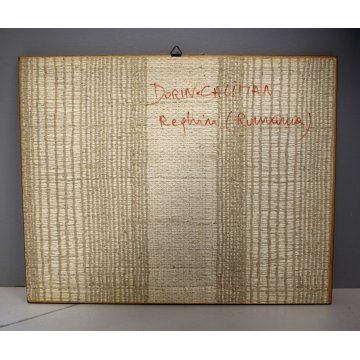 DORIN CALIMAN
Reghin (Rumania)